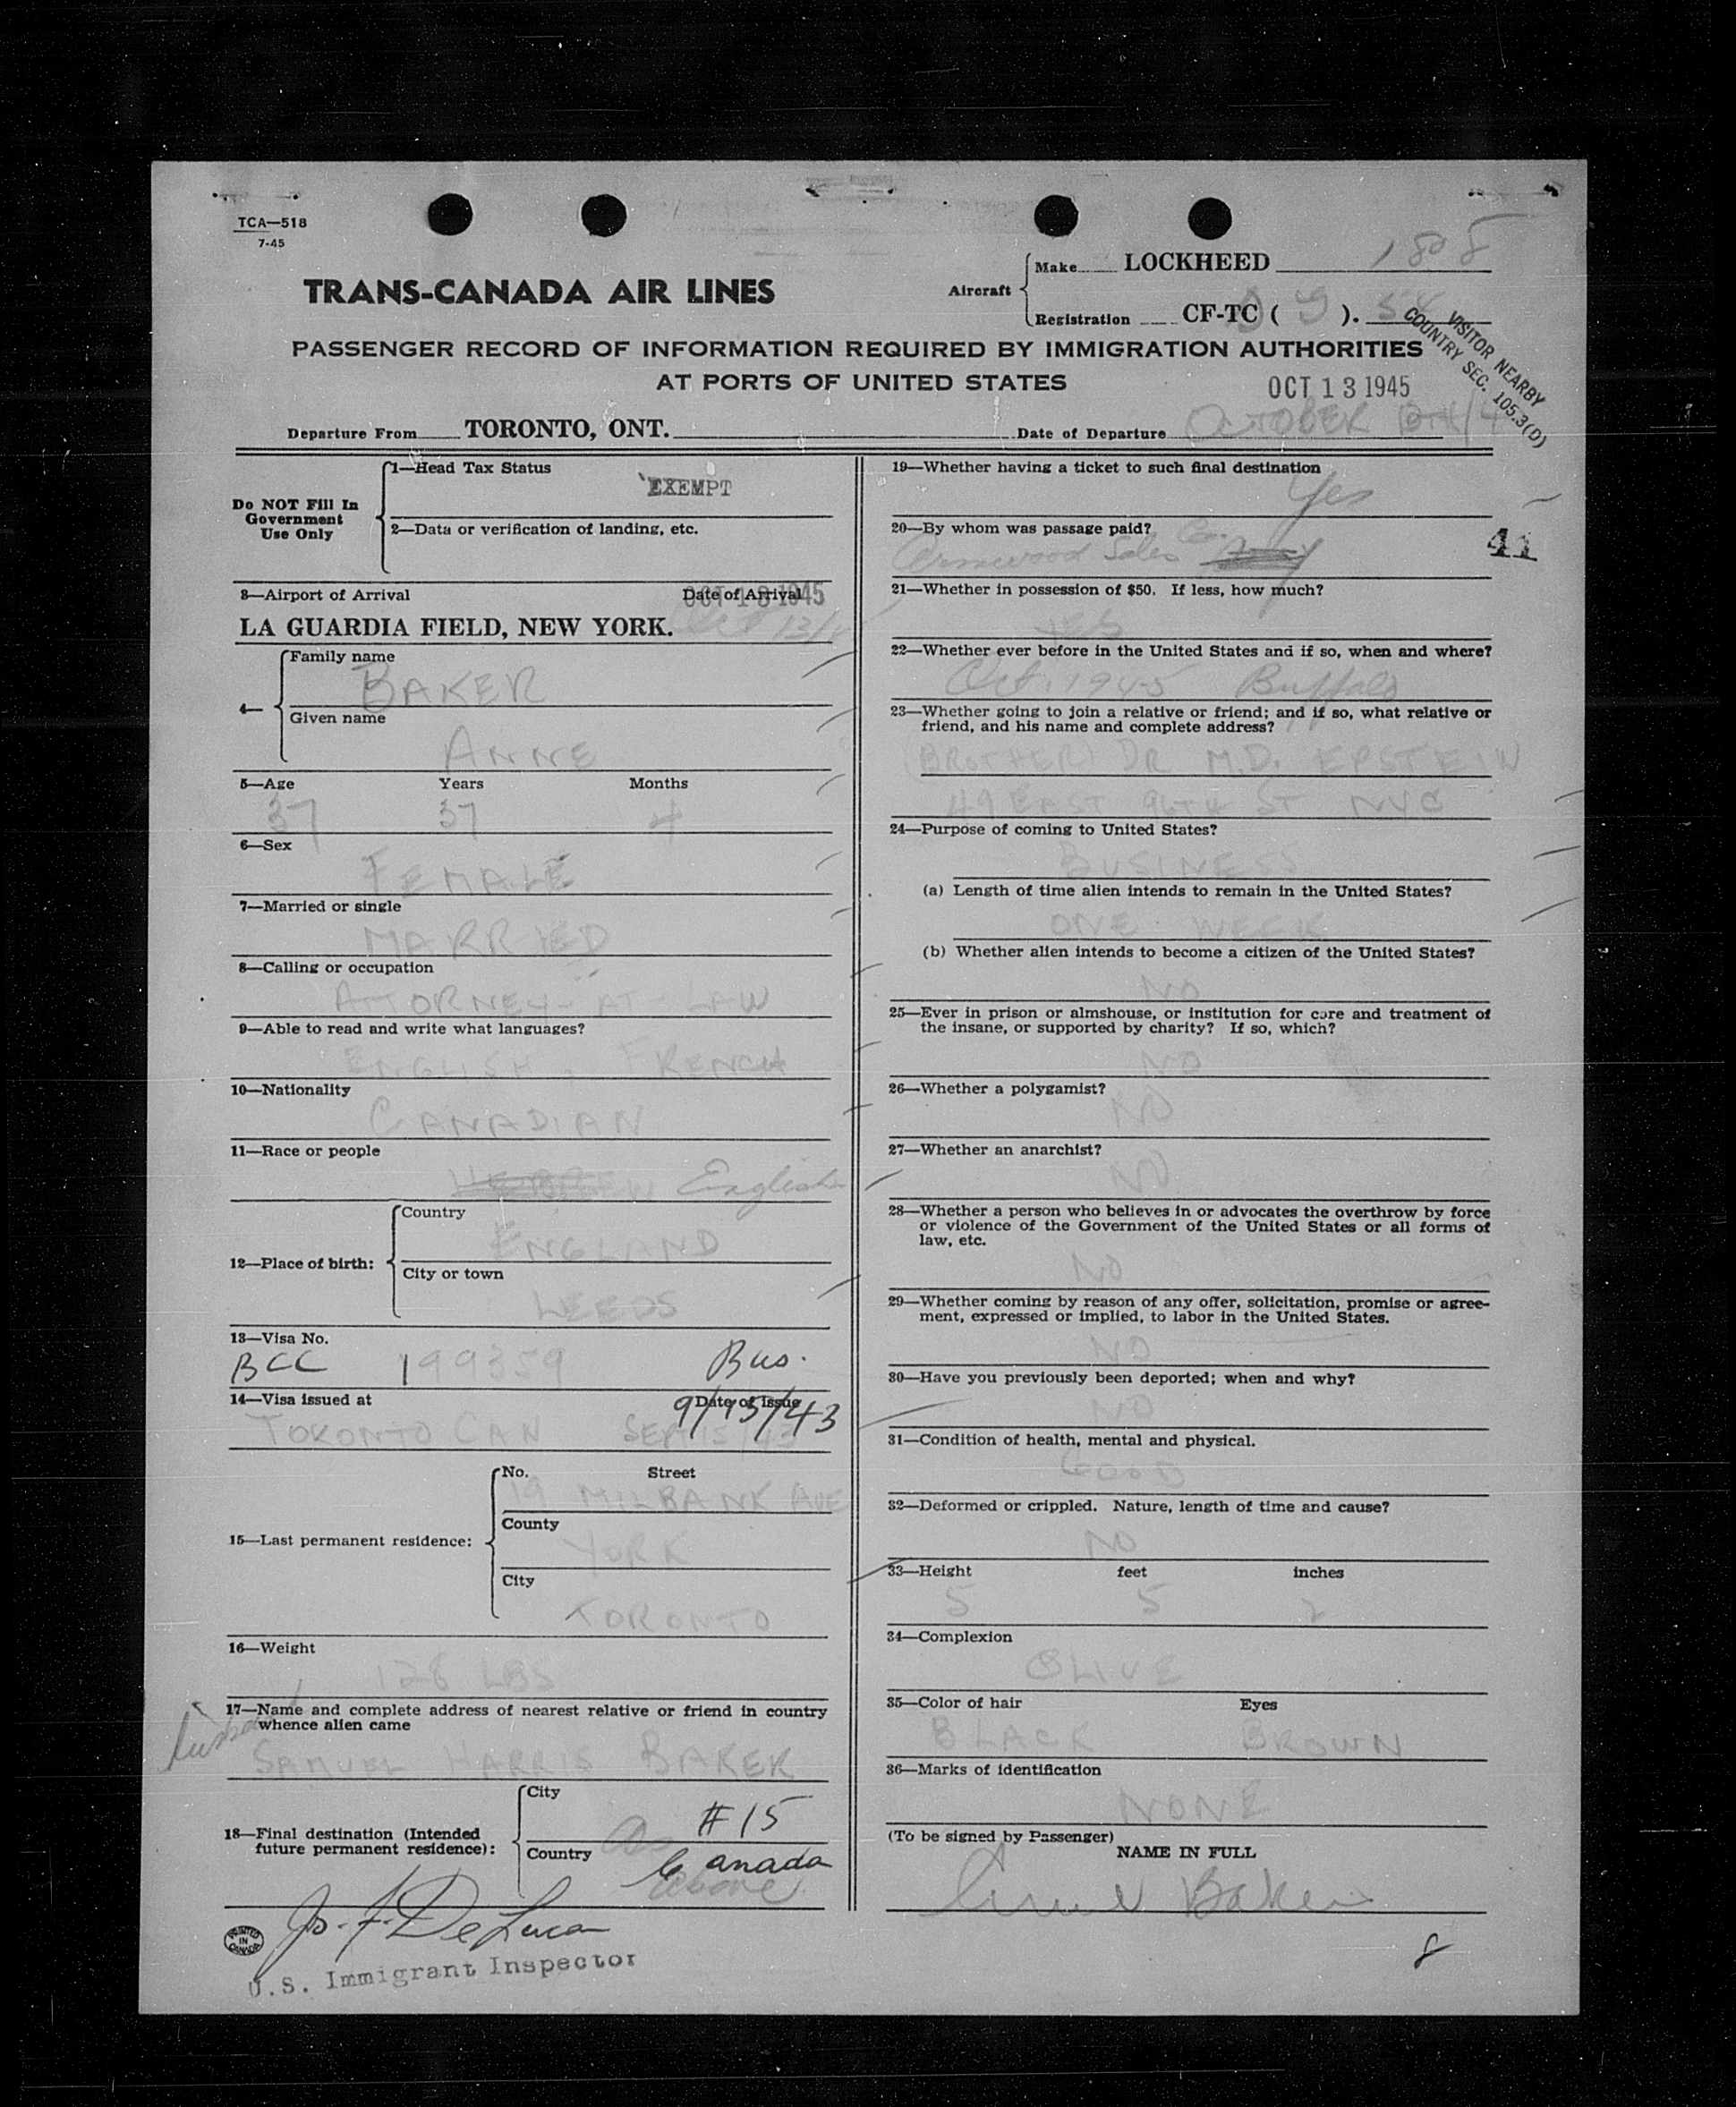 TCA—518
7-45
TRANS-CANADA AIR LINES
Aircraft
Make LOCKHEED 1808
Registration CF-TC ( ).
VISITOR NEARBY
COUNTRY SEC. 105.3(D)
PASSENGER RECORD OF INFORMATION REQUIRED BY IMMIGRATION AUTHORITIES
AT PORTS OF UNITED STATES
OCT 13 1945
Departure From TORONTO, ONT.
Date of Departure OCTOBER
Do NOT Fill In
Government
Use Only
1—Head Tax Status
EXEMPT
2—Data or verification of landing, etc.
3—Airport of Arrival Date of Arrival
OCT 13 1945
LA GUARDIA FIELD, NEW YORK. Oct 13/
4—
Family name
BAKER
Given name
ANNE
5—Age Years Months
37 37 4
6—Sex
FEMALE
7—Married or single
MARRIED
8—Calling or occupation
ATTORNEY-AT-LAW
9—Able to read and write what languages?
ENGLISH, FRENCH
10—Nationality
CANADIAN
11—Race or people
HEBREW English
12—Place of birth:
Country
ENGLAND
City or town
LEEDS
13—Visa No.
BCC 199359 Bus.
14—Visa issued at Date of Issue
9/15/43
TORONTO CAN SEPT 15/43
15—Last permanent residence:
No. Street
19 MILBANK AVE
County
YORK
City
TORONTO
16—Weight
126 LBS
17—Name and complete address of nearest relative or friend in country
whence alien came
SAMUEL HARRIS BAKER
18—Final destination (Intended
future permanent residence):
City
As #15
Country
Canada
above
Jo. F. DeLuca
U.S. Immigrant Inspector
PRINTED
IN
CANADA
19—Whether having a ticket to such final destination
Yes
20—By whom was passage paid?
Armwood Sales Co.
41
21—Whether in possession of $50. If less, how much?
YES
22—Whether ever before in the United States and if so, when and where?
Oct. 1945 Buffalo
23—Whether going to join a relative or friend; and if so, what relative or
friend, and his name and complete address?
(BROTHER) DR M.D. EPSTEIN
49 EAST 96TH ST NYC
24—Purpose of coming to United States?
BUSINESS
(a) Length of time alien intends to remain in the United States?
ONE WEEK
(b) Whether alien intends to become a citizen of the United States?
NO
25—Ever in prison or almshouse, or institution for care and treatment of
the insane, or supported by charity? If so, which?
NO
26—Whether a polygamist?
NO
27—Whether an anarchist?
NO
28—Whether a person who believes in or advocates the overthrow by force
or violence of the Government of the United States or all forms of
law, etc.
NO
29—Whether coming by reason of any offer, solicitation, promise or agree-
ment, expressed or implied, to labor in the United States.
NO
30—Have you previously been deported; when and why?
NO
31—Condition of health, mental and physical.
GOOD
32—Deformed or crippled. Nature, length of time and cause?
NO
33—Height feet inches
5 5 2
34—Complexion
OLIVE
35—Color of hair Eyes
BLACK BROWN
36—Marks of identification
NONE
(To be signed by Passenger)
NAME IN FULL
Anne Baker
8